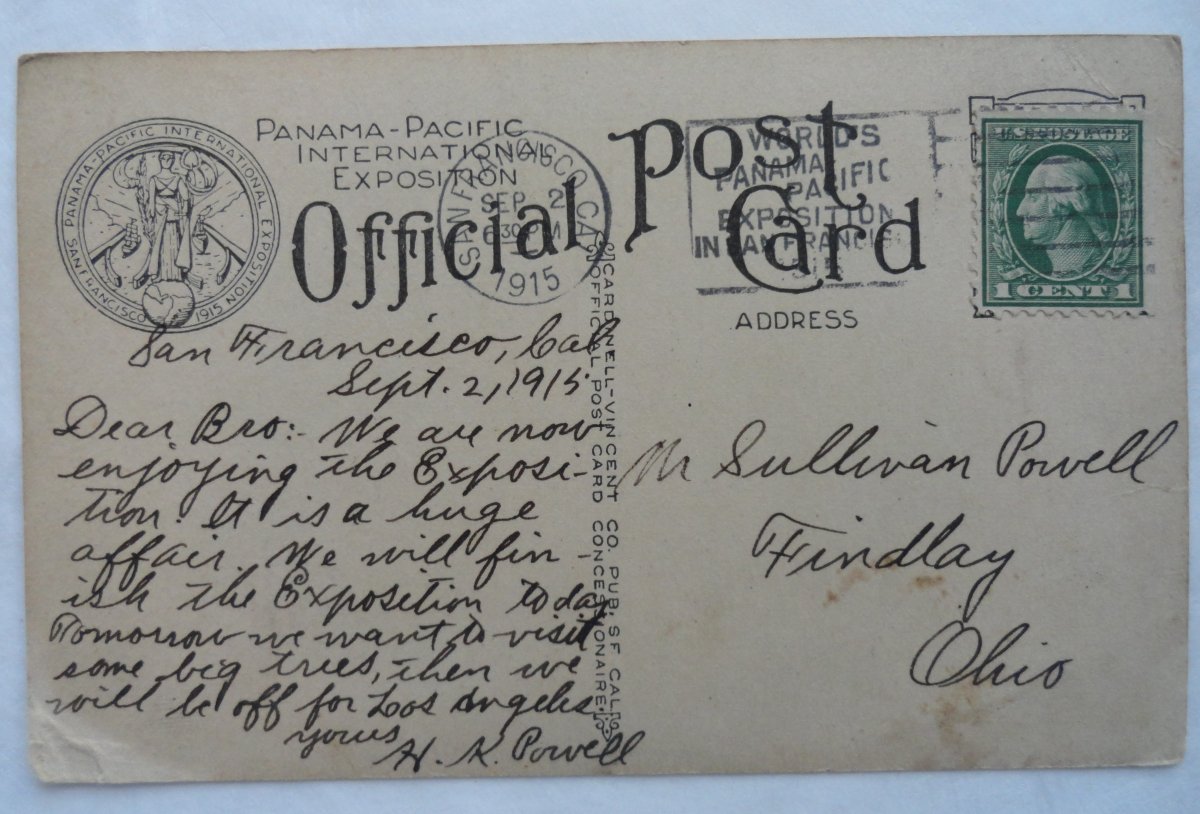 PANAMA-PACIFIC INTERNATIONAL EXPOSITION
SAN FRANCISCO 1915
PANAMA-PACIFIC
INTERNATIONAL
EXPOSITION
Official Post Card
SAN FRANCISCO, CAL.
SEP 2
6 30 PM
1915
WORLD'S
PANAMA
PACIFIC
EXPOSITION
IN SAN FRANCISCO
U.S. POSTAGE
1 CENT 1
ADDRESS
San Francisco, Cal
Sept. 2, 1915.
Dear Bro:- We are now
enjoying the Exposi-
tion. It is a huge
affair. We will fin-
ish the Exposition today
Tomorrow we want to visit
some big trees, then we
will be off for Los Angeles.
yours
H. K. Powell
CARDINELL-VINCENT CO. PUB. SF CAL.
OFFICIAL POST CARD CONCESSIONAIRE.
Mr Sullivan Powell
Findlay
Ohio